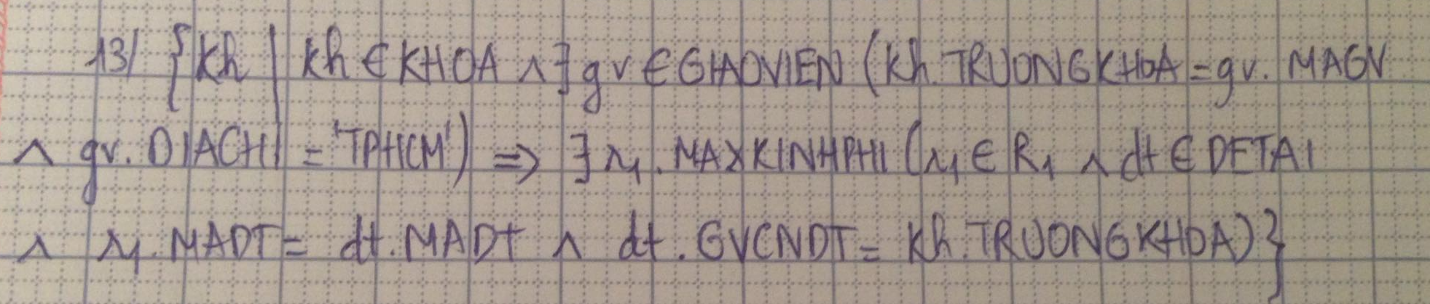 13/ {kh | kh ∈ KHOA ∧ ∃ gv ∈ GIAOVIEN (kh.TRUONGKHOA = gv.MAGV
∧ gv.DIACHI = 'TPHCM') => ∃ r₁.MAXKINHPHI (r₁ ∈ R₁ ∧ dt ∈ DETAI
∧ r₁.MADT = dt.MADT ∧ dt.GVCNDT = kh.TRUONGKHOA)}